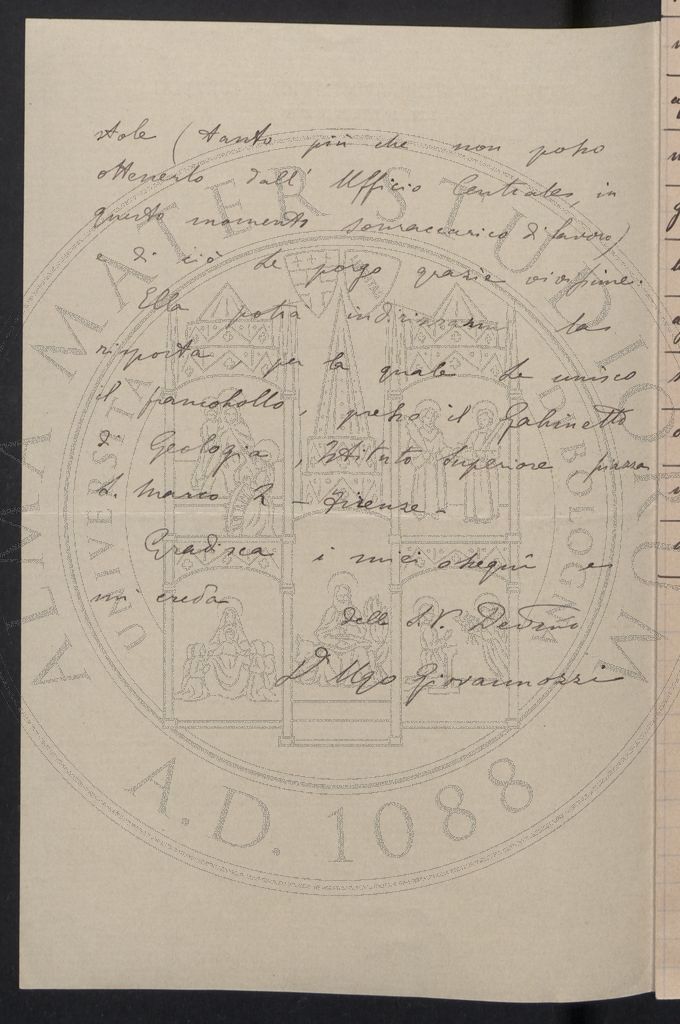 stole (tanto più che non posso
ottenerlo dall' Ufficio Centrale, in
questo momento sovraccarico di lavoro)
e di ciò Le porgo grazie vivissime.
Ella potrà indirizzarmi la
risposta, per la quale Le unisco
il francobollo, presso il Gabinetto
di Geologia, Istituto Superiore, piazza
S. Marco 2 - Firenze -
Gradisca i miei ossequi e
mi creda
della S.V. Devmo
D Ugo Giovannozzi
ALMA MATER STUDIORUM
UNIVERSITÀ BOLOGNA
A.D. 1088